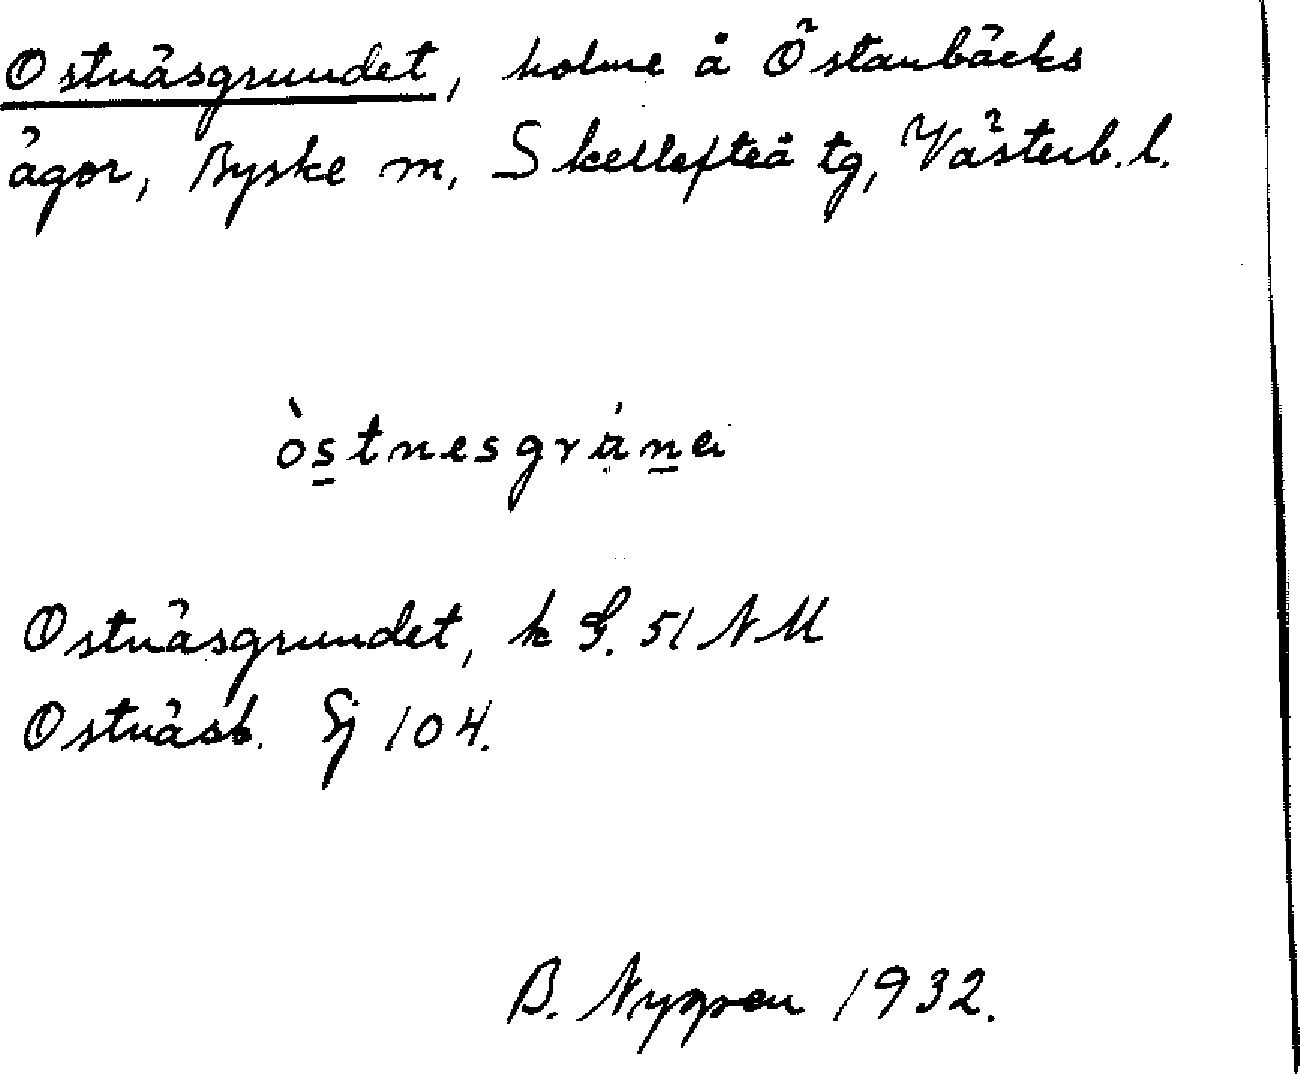 Ostnäsgrundet, holme å Östanbäcks
ägor, Byske m, Skellefteå tg, Västerb. l.
òstnesgrána
Ostnäsgrundet, k G. 51 NM
Ostnäsb. Sj 104.
B. Nygren 1932.